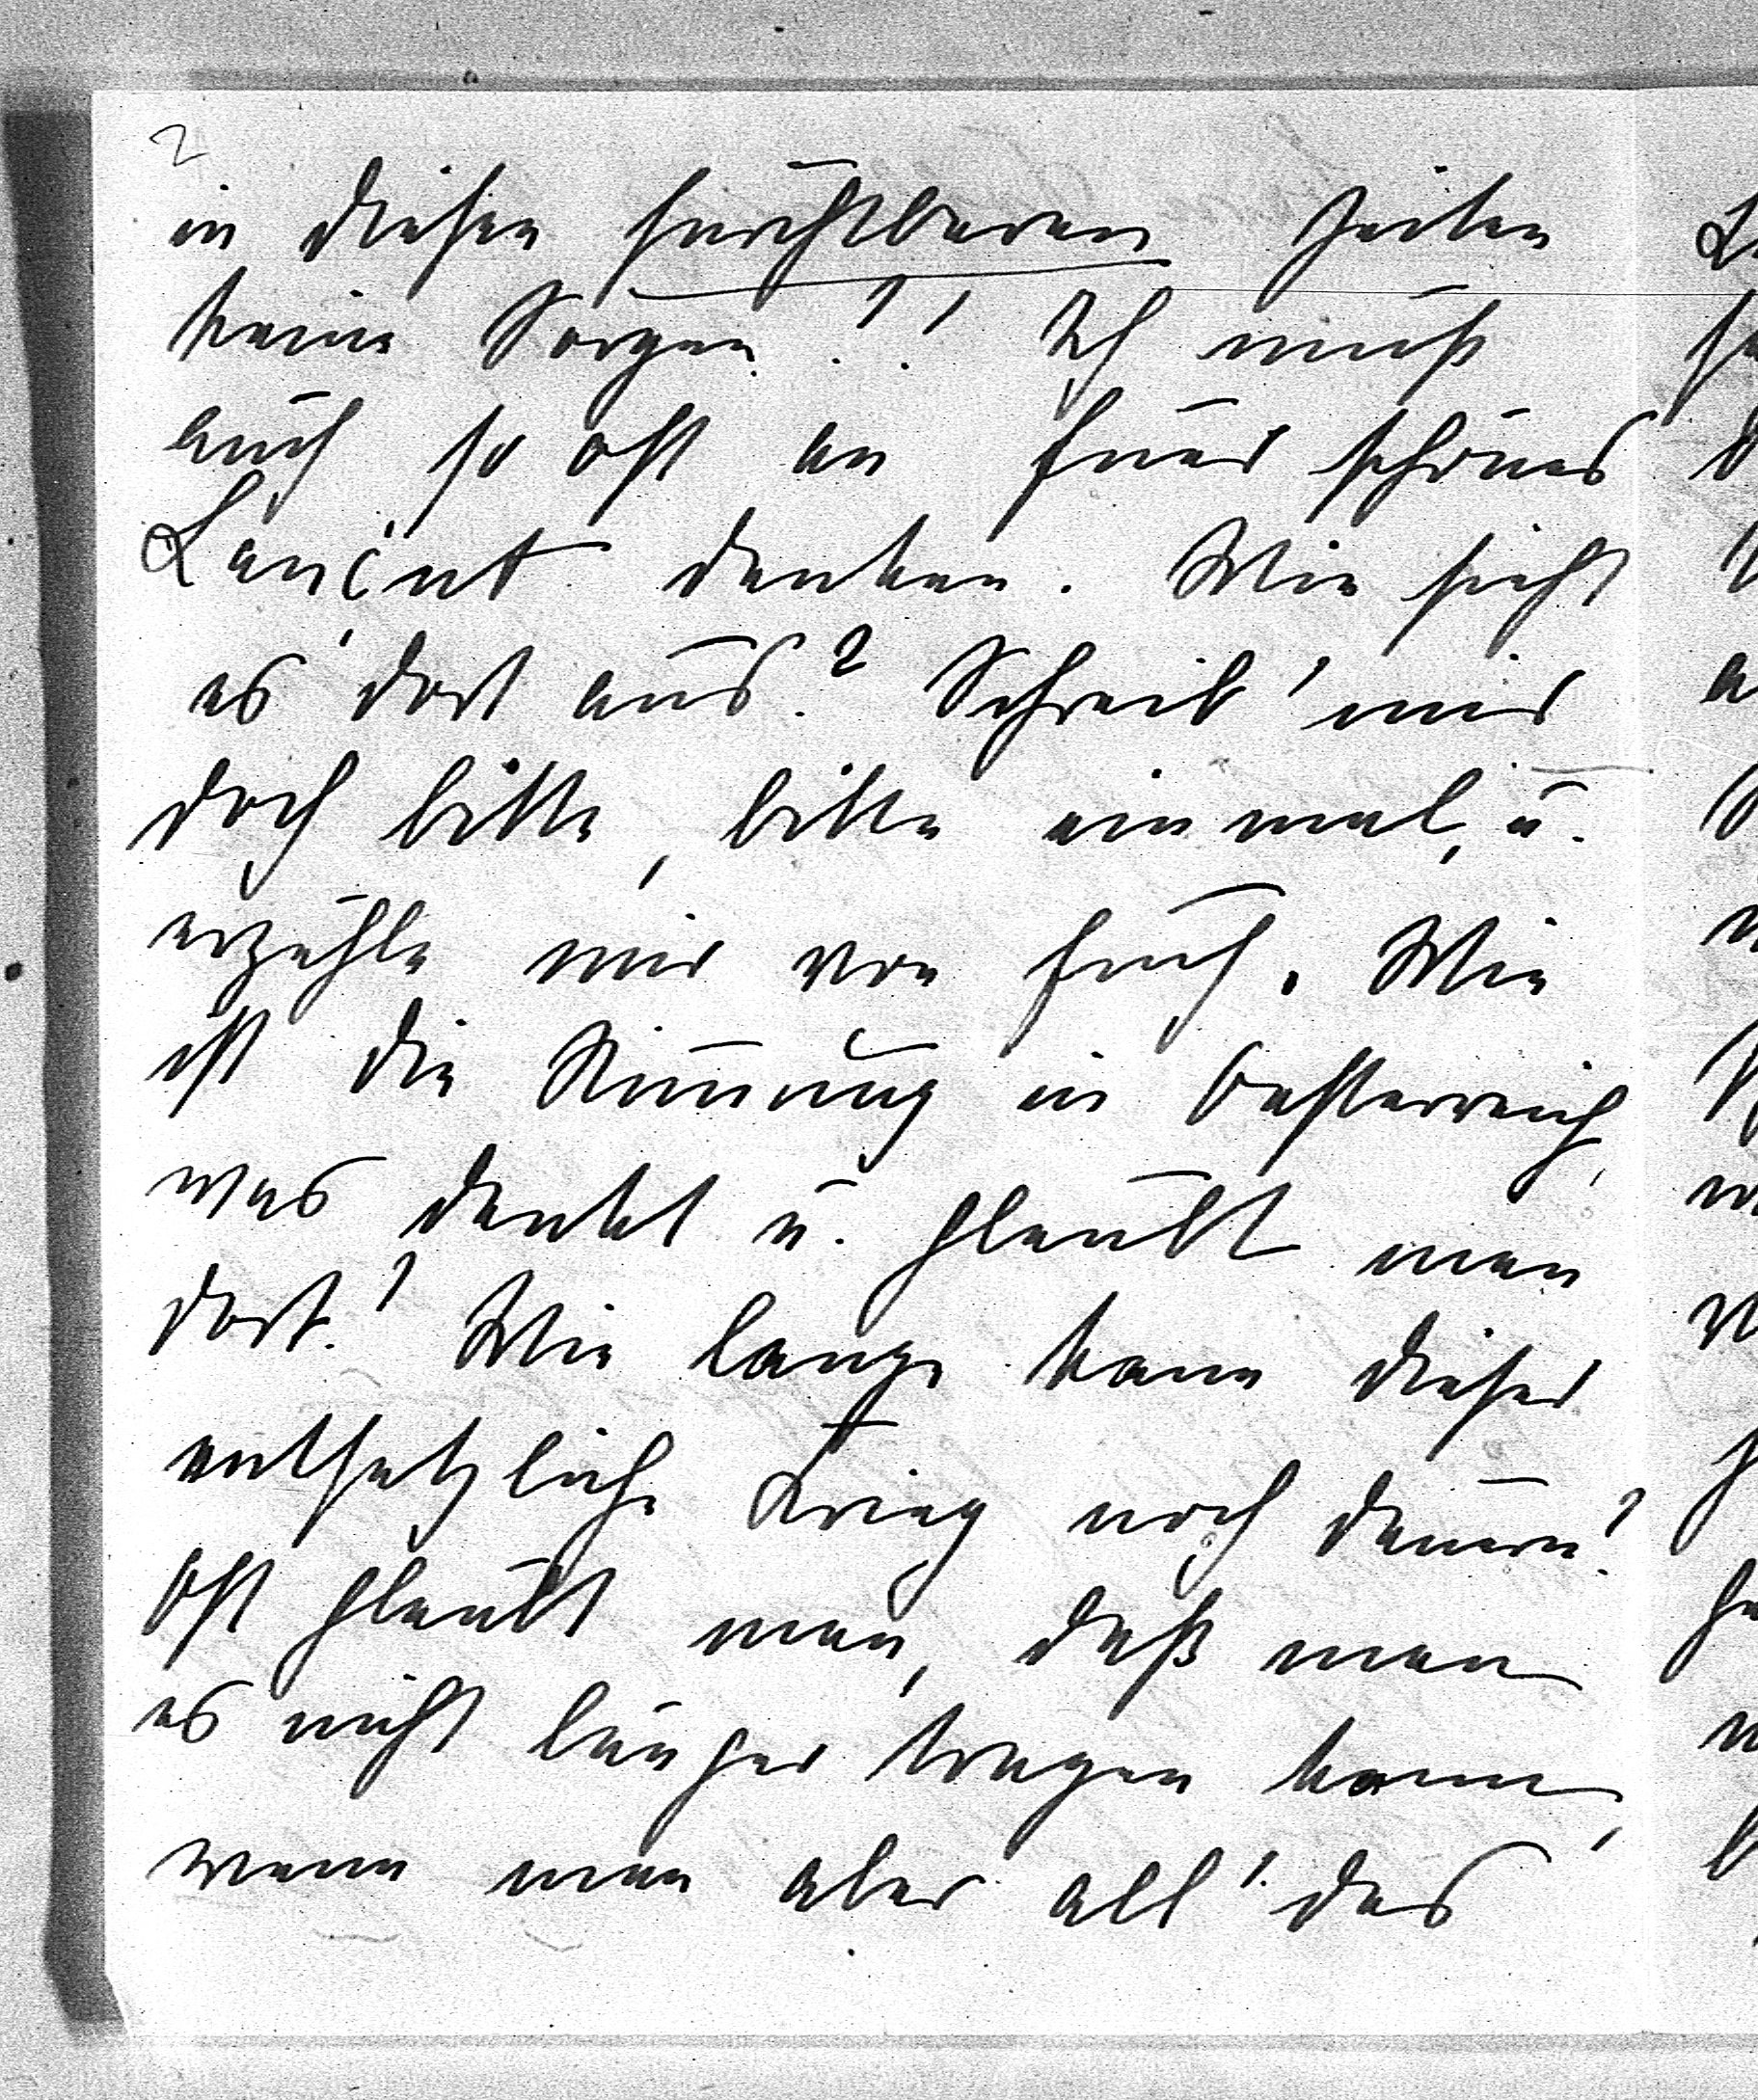 2
in diesen furchtbaren Zeiten
keine Sorgen!! Ich muß
auch so oft an Euer schönes
Łańcut denken. Wie sieht
es dort aus? Schreib' mir
doch bitte, bitte einmal, u.
erzähle mir von Euch. Wie
ist die Stim̅ung in Oesterreich,
was denkt u. glaubt man
dort? Wie lange kann dieser
entsetzliche Krieg noch dauern?
Oft glaubt man, daß man
es nicht länger tragen kann,
wenn man aber all' das